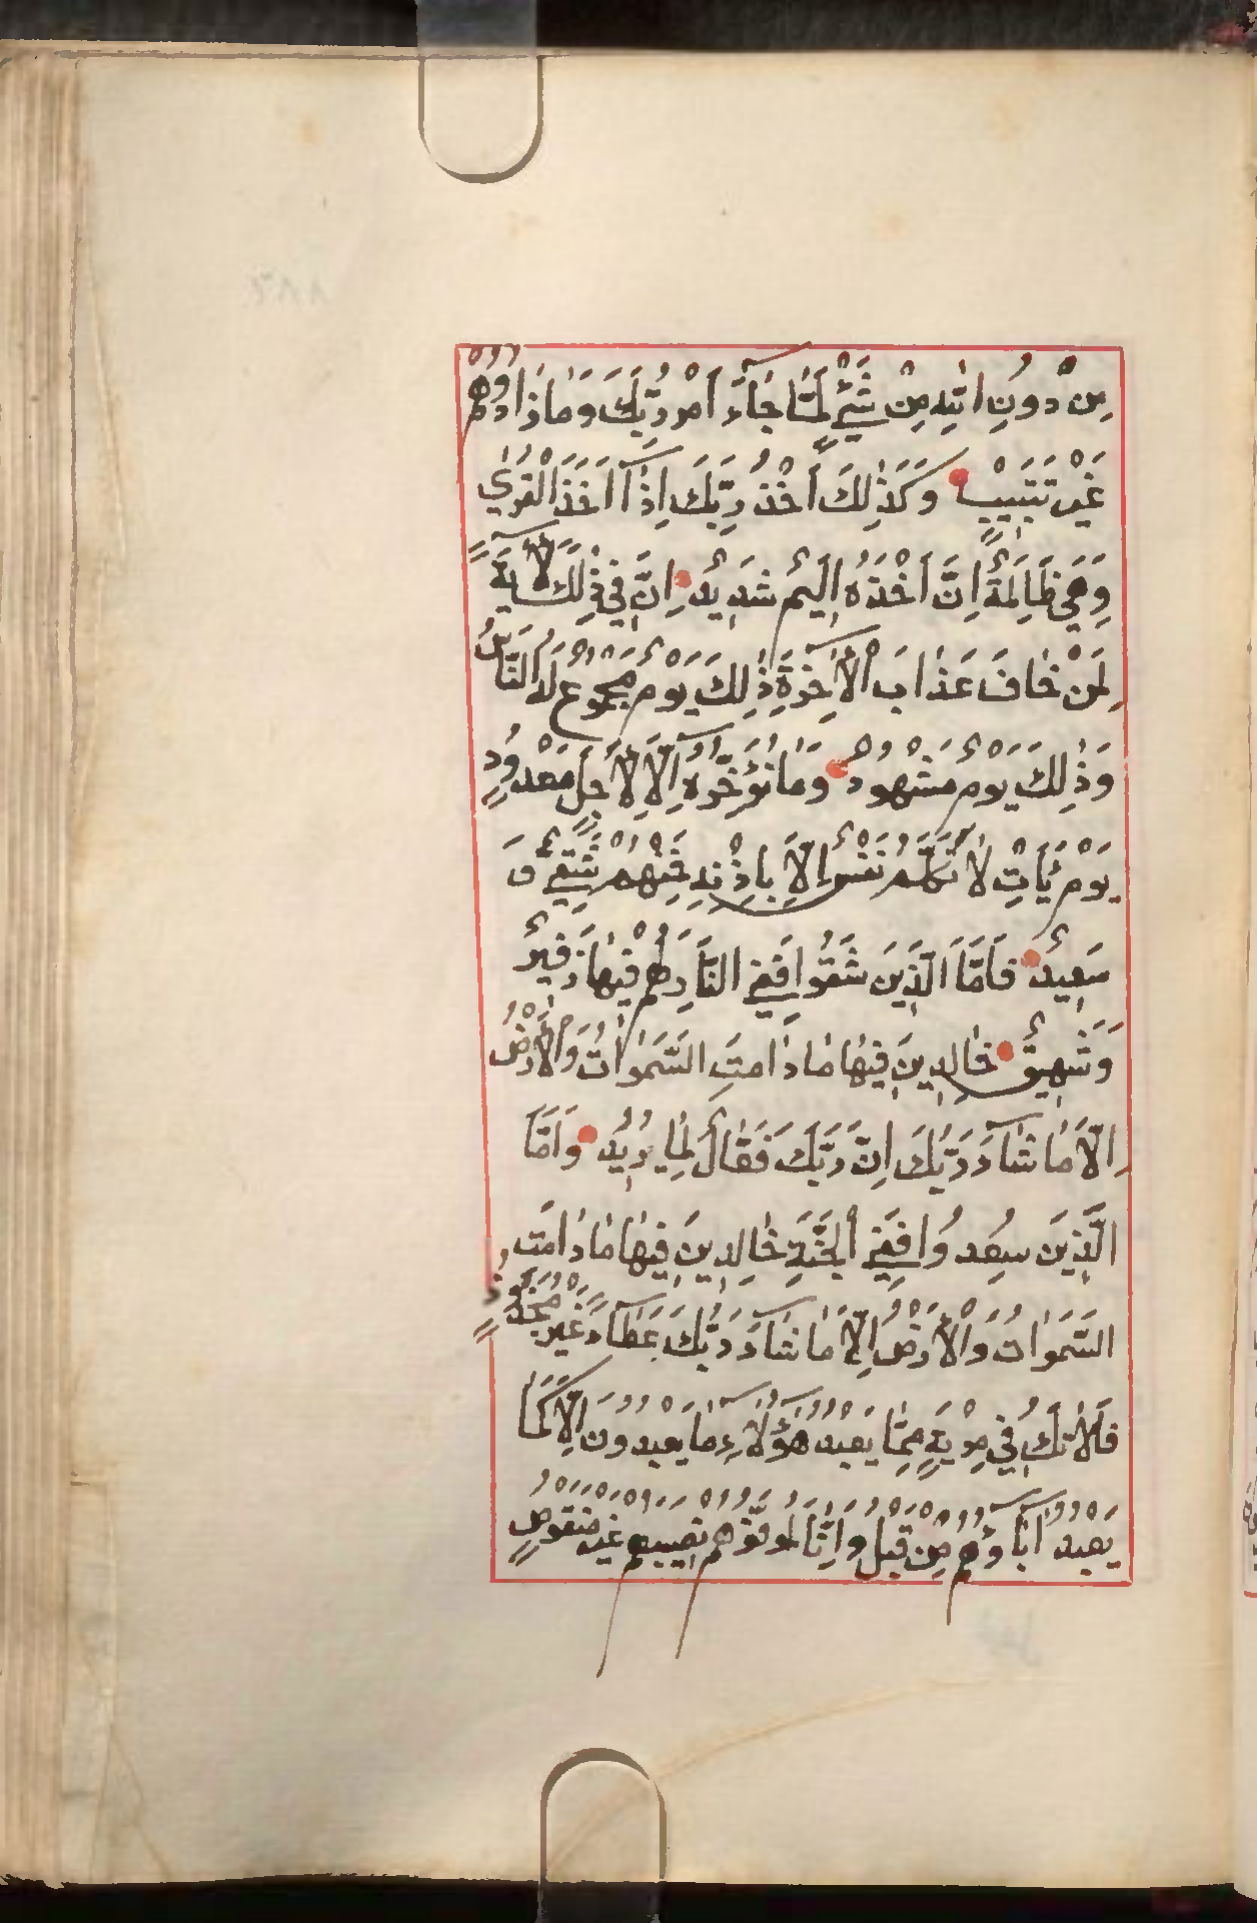 مِنْ دُونِ اللّٰهِ مِنْ شَيْءٍ لَمَّا جَٓاءَ اَمْرُ رَبِّكَ وَمَا زَادُوهُمْ
غَيْرَ تَتْبِيبٍ وَكَذٰلِكَ اَخْذُ رَبِّكَ اِذَٓا اَخَذَ الْقُرٰى
وَهِيَ ظَالِمَةٌ اِنَّ اَخْذَهُ اَلِيمٌ شَدِيدٌ اِنَّ فِي ذٰلِكَ لَاٰيَةً
لِمَنْ خَافَ عَذَابَ الْاٰخِرَةِ ذٰلِكَ يَوْمٌ مَجْمُوعٌ لَهُ النَّاسُ
وَذٰلِكَ يَوْمٌ مَشْهُودٌ وَمَا نُؤَخِّرُهُ اِلَّا لِاَجَلٍ مَعْدُودٍ
يَوْمَ يَأْتِ لَا تَكَلَّمُ نَفْسٌ اِلَّا بِاِذْنِهِ فَمِنْهُمْ شَقِيٌّ وَ
سَعِيدٌ فَاَمَّا الَّذِينَ شَقُوا فَفِي النَّارِ لَهُمْ فِيهَا زَفِيرٌ
وَشَهِيقٌ خَالِدِينَ فِيهَا مَا دَامَتِ السَّمٰوَاتُ وَالْاَرْضُ
اِلَّا مَا شَٓاءَ رَبُّكَ اِنَّ رَبَّكَ فَعَّالٌ لِمَا يُرِيدُ وَاَمَّا
الَّذِينَ سُعِدُوا فَفِي الْجَنَّةِ خَالِدِينَ فِيهَا مَا دَامَتِ
السَّمٰوَاتُ وَالْاَرْضُ اِلَّا مَا شَٓاءَ رَبُّكَ عَطَٓاءً غَيْرَ مَجْذُوذٍ
فَلَا تَكُ فِي مِرْيَةٍ مِمَّا يَعْبُدُ هٰٓؤُلَٓاءِ مَا يَعْبُدُونَ اِلَّا كَمَا
يَعْبُدُ اٰبَٓاؤُهُمْ مِنْ قَبْلُ وَاِنَّا لَمُوَفُّوهُمْ نَصِيبَهُمْ غَيْرَ مَنْقُوصٍ